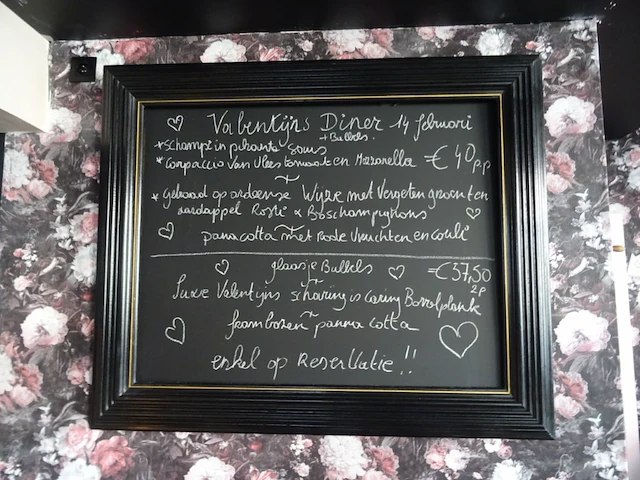 Valentijns Diner 14 februari
+ Bubbels.
*schampi in pikante saus
*Carpaccio van Vlees tomaat en Mozarella €40 p.p
~
* Gebraad op ardeense Wijze met Vergeten groenten
aardappel Rosti & Boschampignons
~
panacotta met Rode Vruchten en couli
glaasje Bubbels =€37,50
2p
Luxe Valentijns scharing is caring Borrelplank
~
frambozen panna cotta
enkel op Reservatie !!